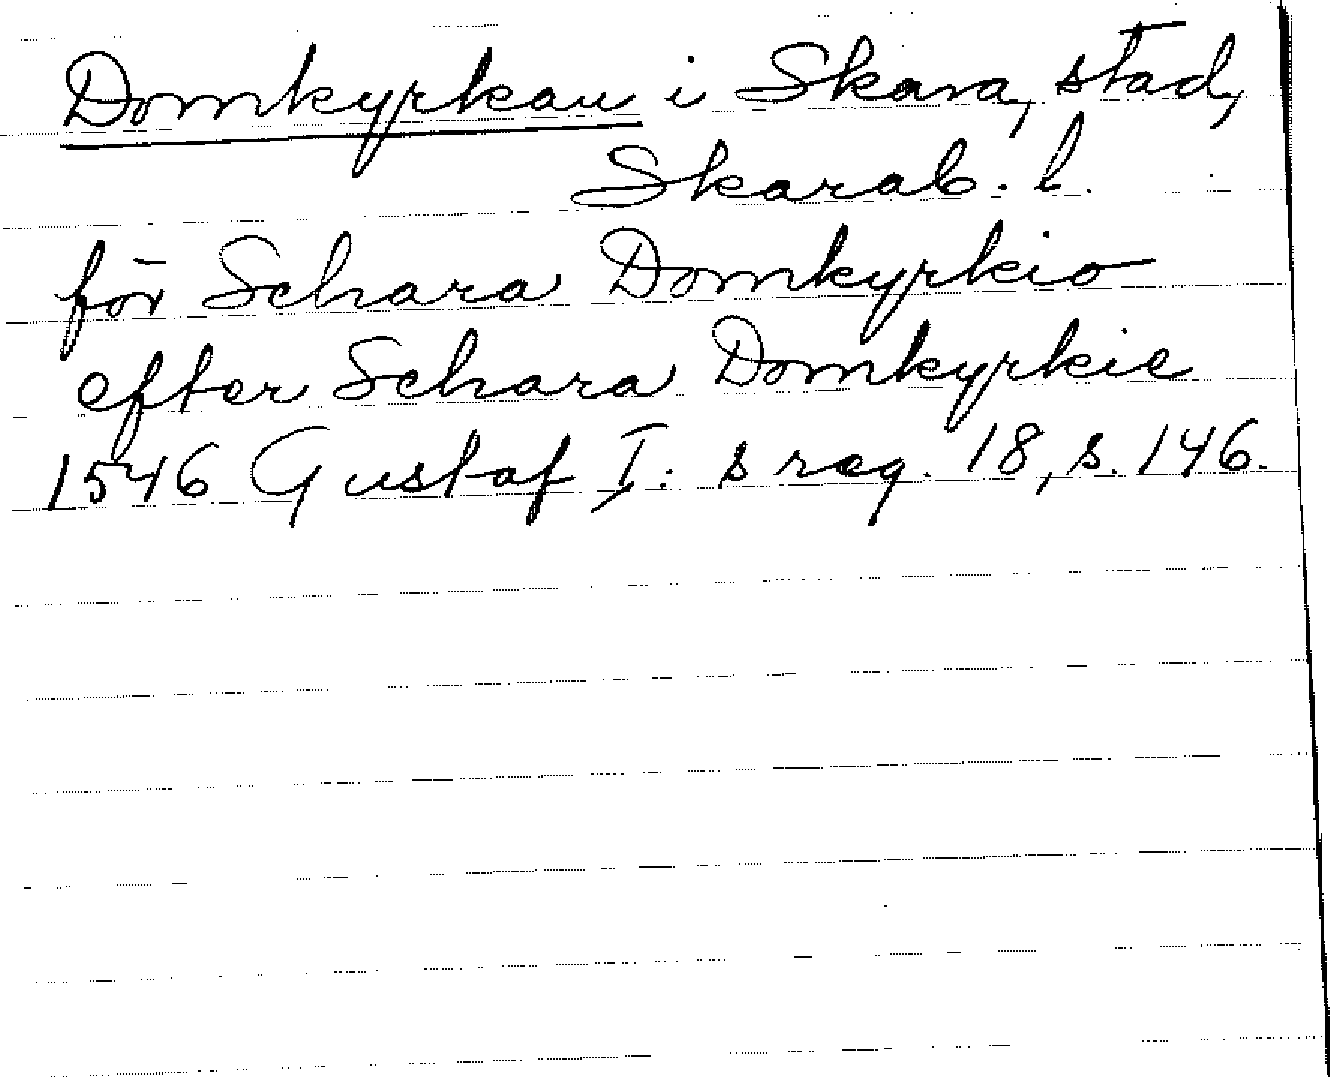 Domkyrkan i Skara, stad,
Skarab. l.
för Schara Domkyrkio
efter Schara Domkyrkie
1546 Gustaf I: s reg. 18, s. 146.